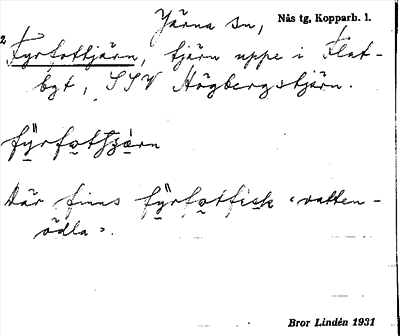 Järna sn, Nås tg, Kopparb. l.
2 Fyrfottjärn, tjärn uppe i Flat-
bgt, SSV Högbergstjärn.
fÿrfo̤t
Där finns fÿrfo̤tfisk ‹vatten-
ödla›.
Bror Lindén 1931